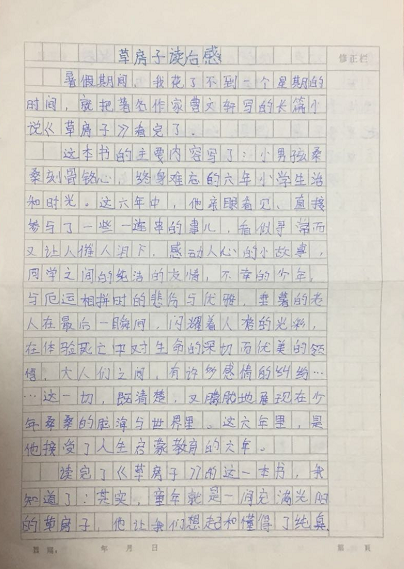 草房子读后感
修正栏
暑假期间,我花了不到一个星期的
时间,就把著名作家曹文轩写的长篇小
说《草房子》看完了。
这本书的主要内容写了:小男孩桑
桑刻骨铭心,终身难忘的六年小学生活
和时光。这六年中,他亲眼看见、直接
参与了一些一连串的事儿,看似寻常而
又让人催人泪下,感动人心的小故事,
同学之间的纯洁的友情,不幸的少年。
与厄运相拼时的悲伤与优雅,垂暮的老
人在最后一瞬间,闪耀着人格的光彩,
在体验死亡中对生命的深切而优美的领
悟,大人们之间,有许多感情的纠纷…
…这一切,既清楚,又朦胧地展现在少
年桑桑的脑海与世界里。这六年里,是
他接受了人生启蒙教育的六年。
读完了《草房子》的这一本书,我
知道了:其实,童年就是一间充满光的
的草房子,他让我们想起和懂得了纯真
年 月 日
第 页